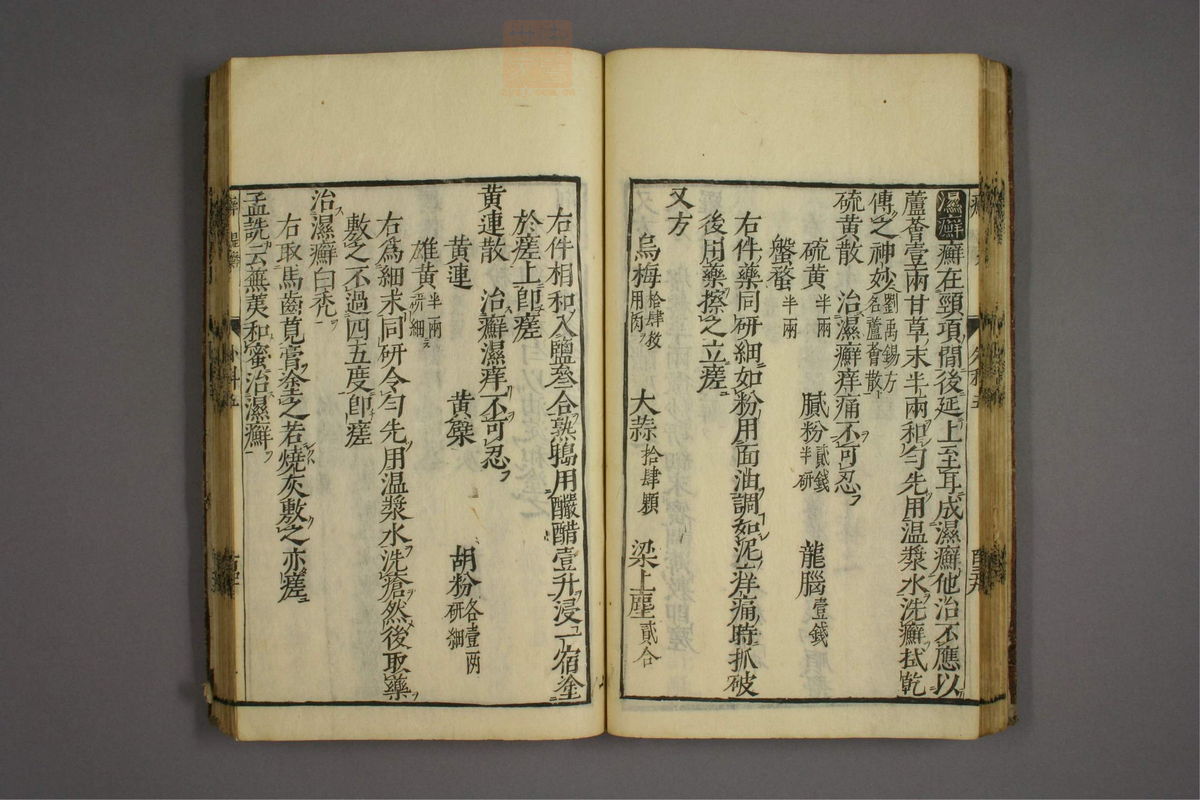 濕癬 癬在頸項間後延上至耳成濕癬他治不應以
蘆薈壹兩甘草末半兩和勻先用温漿水洗癬拭乾
傅之神妙 劉禹錫方名蘆薈散
硫黄散 治濕癬痒痛不可忍
硫黄 半兩 膩粉 貳錢半研 龍腦 壹錢
盤蝥 半兩
右件藥同研細如粉用面油調如泥痒痛時抓破
後用藥擦之立瘥
又方
烏梅 拾肆枚用肉 大蒜 拾肆顆 梁上塵 貳合
右件相和入鹽叄合熟鵰用釅醋壹升浸一宿塗
於瘥上卽瘥
黄連散 治癬濕痒不可忍
黄連 黄蘗 胡粉 各壹兩研細
雄黄 半兩研細
右為細末同研令勻先用温漿水洗瘡然後取藥
敷之不過四五度卽瘥
治濕癬白禿
右取馬齒莧膏塗之若燒灰敷之亦瘥
孟詵云蕪荑和蜜治濕癬
外科五